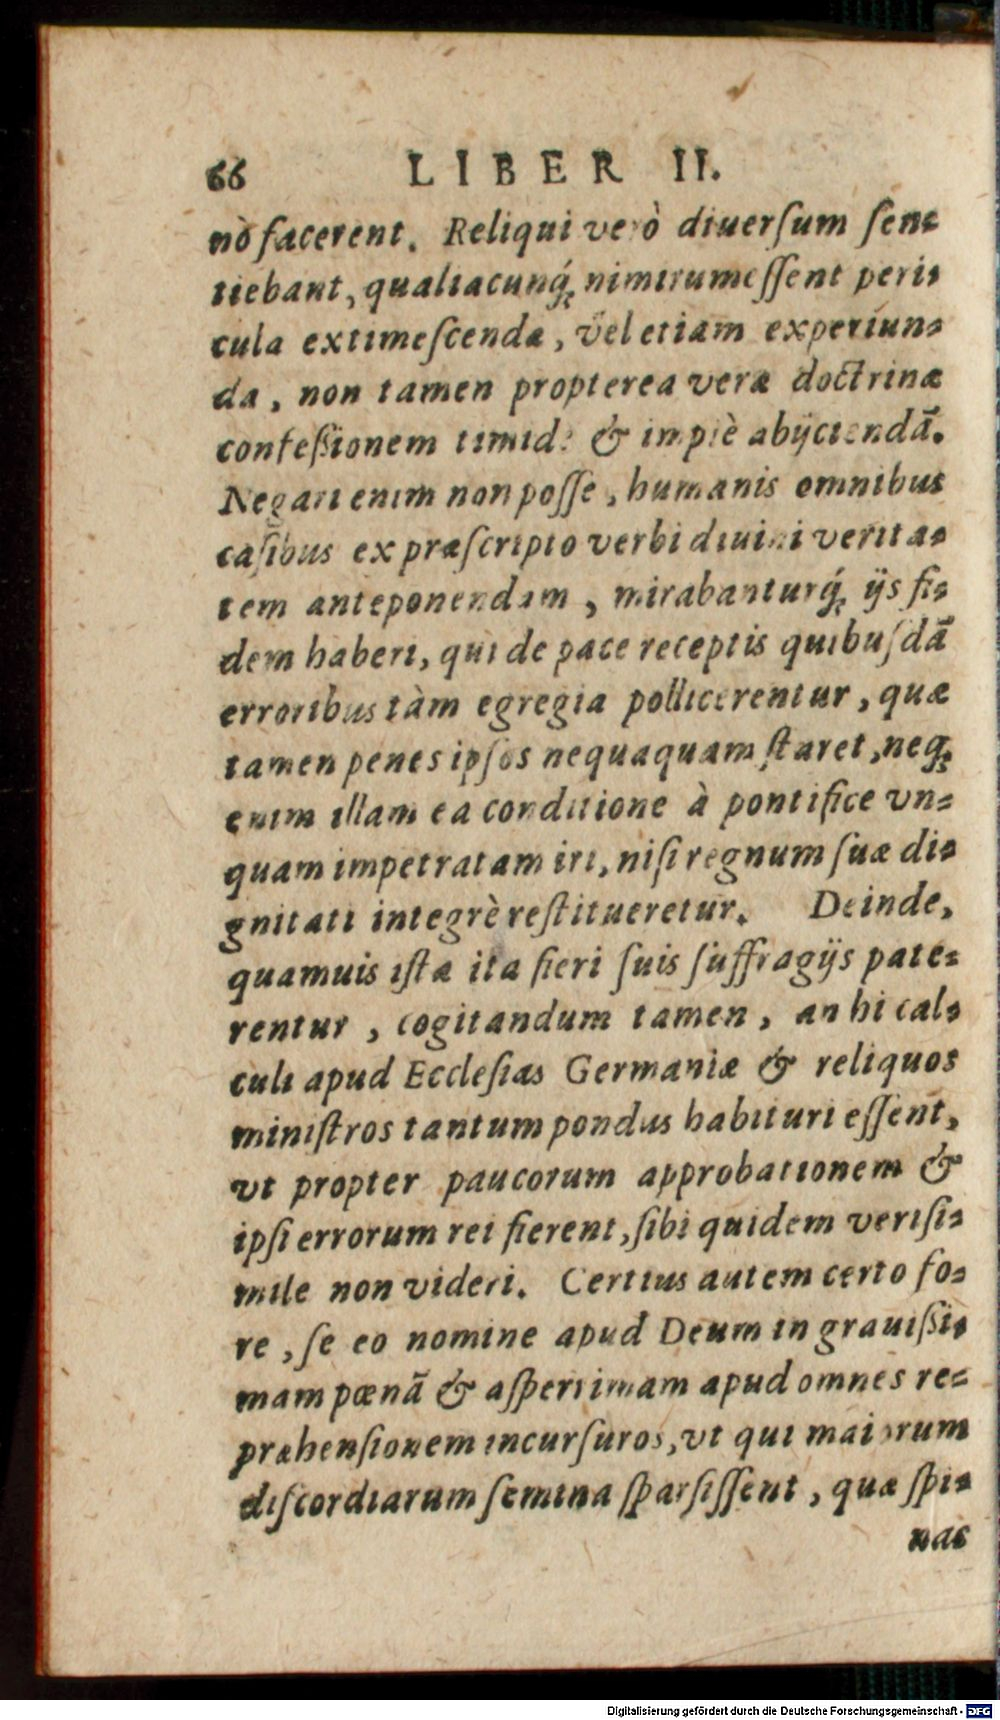 66 LIBER II.
nò facerent. Reliqui verò diuerſum ſen=
tiebant, qualiacunq́; nimirum eſſent peri=
cula extimeſcenda, vel etiam experiun=
da, non tamen propterea veræ doctrinæ
confeßionem timidè & impiè abijciendā.
Negari enim non poſſe, humanis omnibus
caſibus ex præſcripto verbi diuini verita=
tem anteponendam, mirabanturq́; ijs fi=
dem haberi, qui de pace receptis quibuſdā
erroribus tàm egregia pollicerentur, quæ
tamen penes ipſos nequaquam ſtaret, neq;
enim illam ea conditione à pontifice vn=
quam impetratam iri, niſi regnum ſuæ di=
gnitati integrè reſtitueretur. Deinde,
quamuis iſtæ ita fieri ſuis ſuffragijs pate=
rentur, cogitandum tamen, an hi cal=
culi apud Eccleſias Germaniæ & reliquos
miniſtros tantum pondus habituri eſſent,
vt propter paucorum approbationem &
ipſi errorum rei fierent, ſibi quidem veriſi=
mile non videri. Certius autem certo fo=
re, ſe eo nomine apud Deum in grauißi=
mam pœnā & aſperrimam apud omnes re=
præhenſionem incurſuros, vt qui maiorum
diſcordiarum ſemina ſparſiſſent, quæ ſpi=
nas
Digitalisierung gefördert durch die Deutsche Forschungsgemeinschaft - DFG